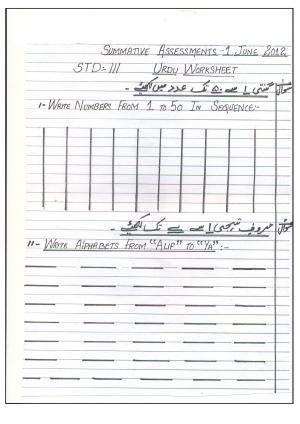 SUMMATIVE ASSESSMENTS-1 JUNE 2012
STD-III URDU WORKSHEET
سوال گنتی ۱ سے ۵۰ تک عدد میں لکھئے -
1- WRITE NUMBERS FROM 1 TO 50 IN SEQUENCE:-
سوال حروف تہجی ا سے ے تک لکھئے -
11- WRITE ALPHABETS FROM "ALIF" TO "YA":-